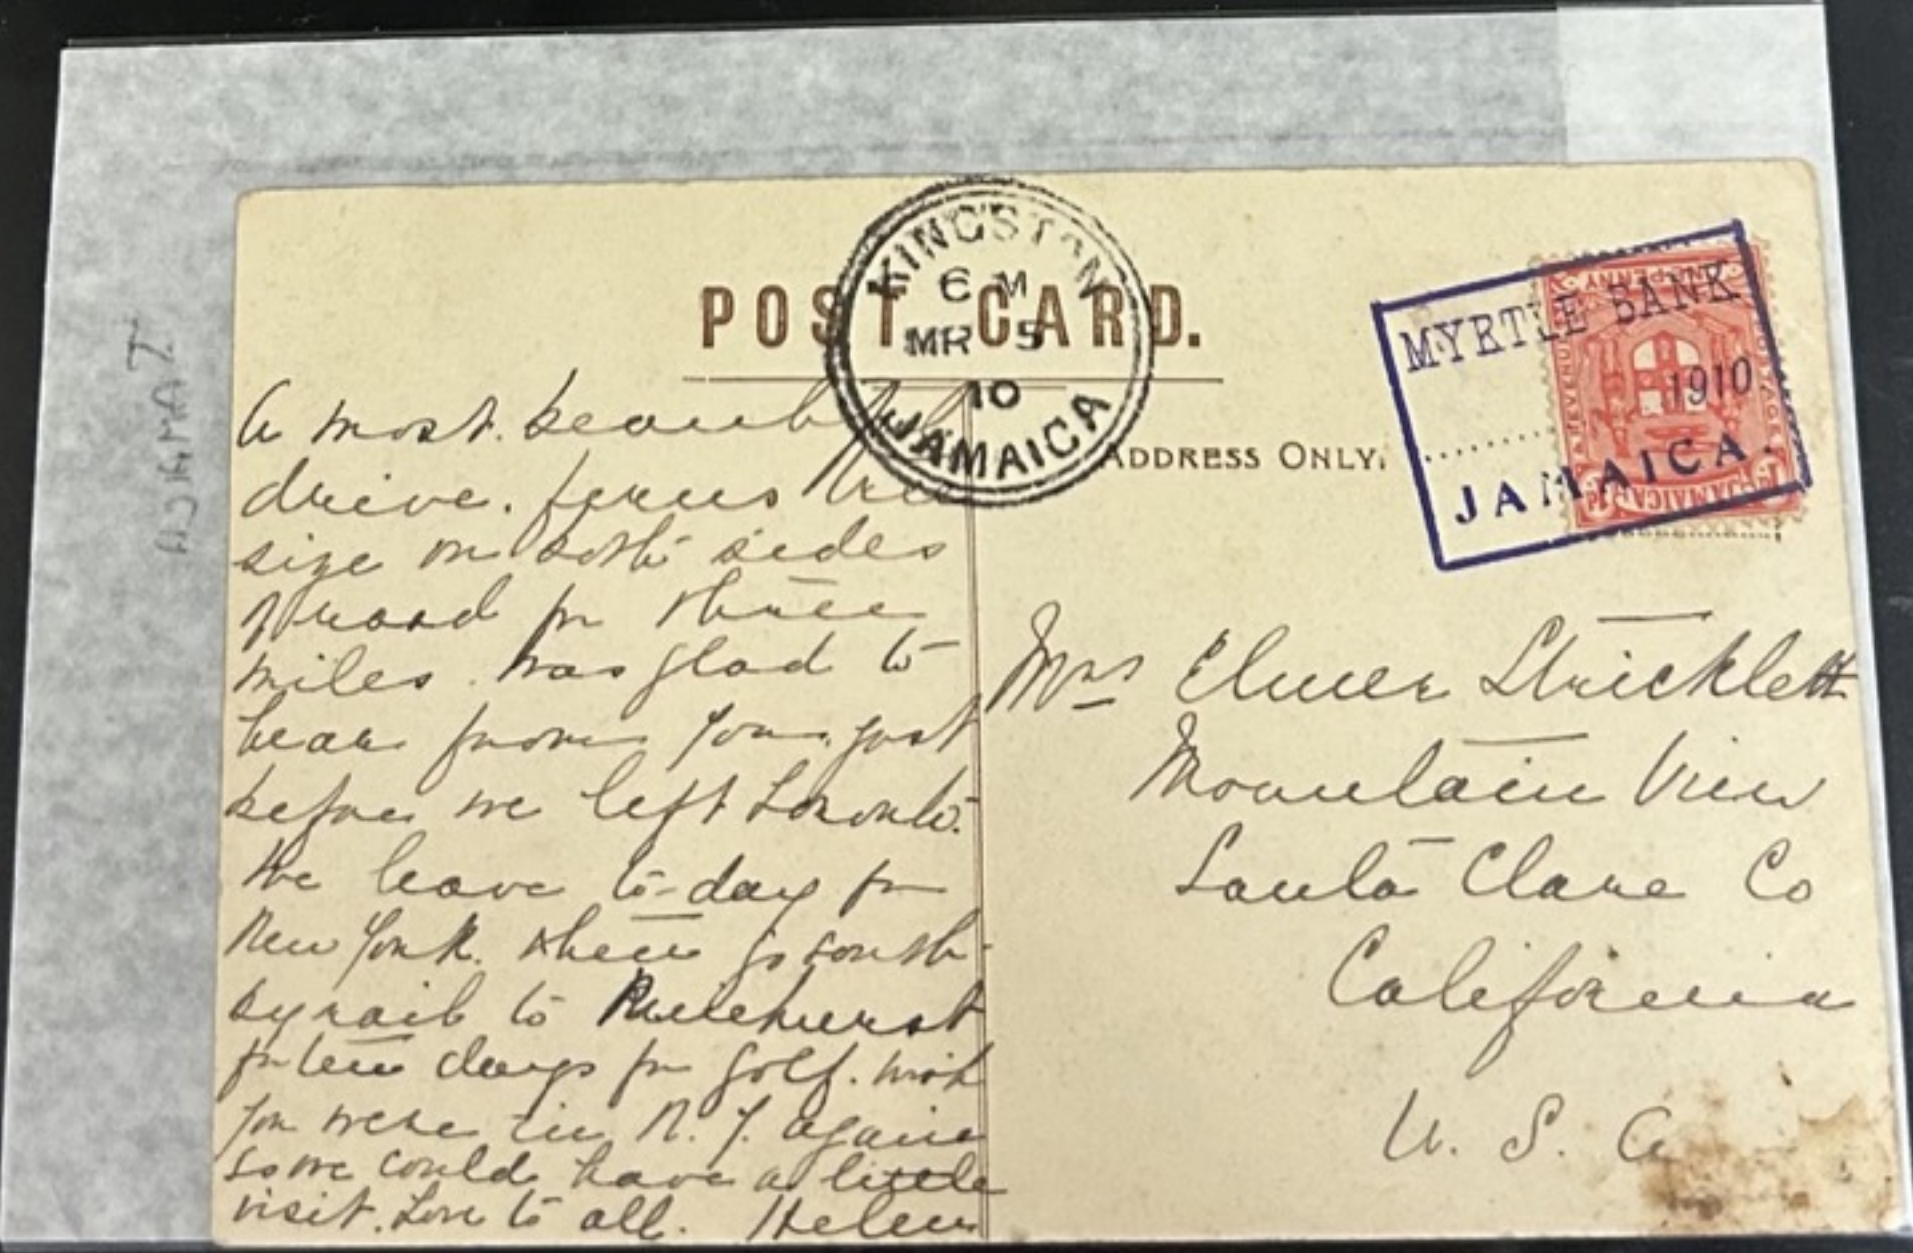 POST CARD.
KINGSTON
6 M
MR 5
10
JAMAICA
ADDRESS ONLY.
MYRTLE BANK
1910
JAMAICA.
ONE PENNY
REVENUE
JAMAICA
JAMAICA
A most beautiful
drive. ferns tree
size on both sides
of road for three
miles. Was glad to
hear from you just
before we left Toronto.
We leave to-day for
New York. then go south
by rail to Pinehurst
for ten days for golf. Wish
you were in N. Y. again
so we could have a little
visit. Love to all. Helen
Mrs Elmer Stricklett
Mountain View
Santa Clara Co
California
U. S. A